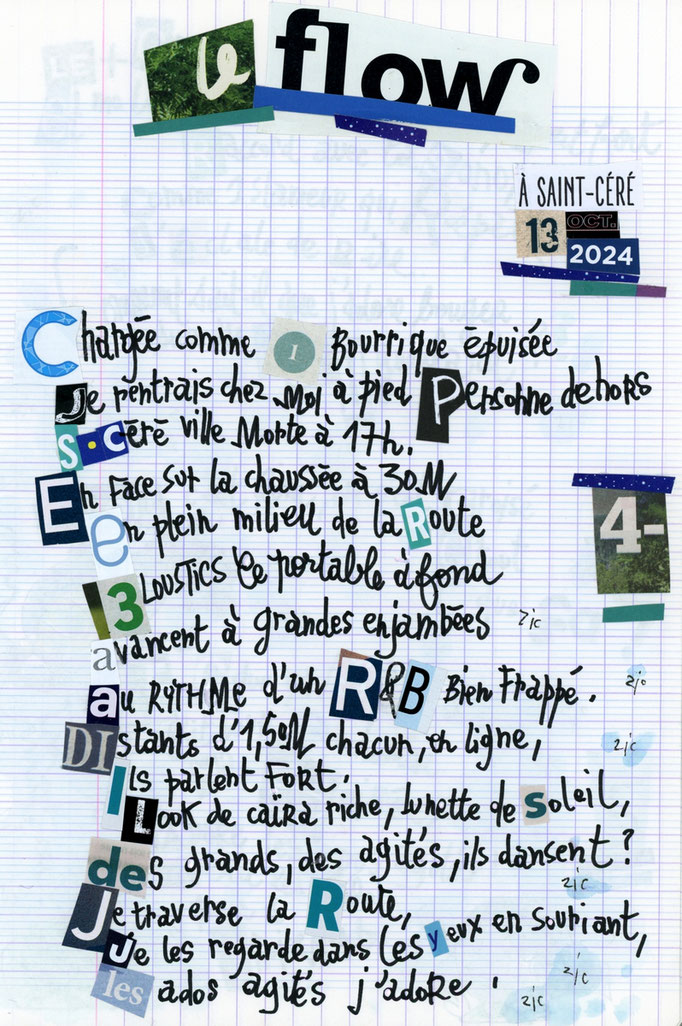 le flow
À SAINT-CÉRÉ
13 OCT. 2024
Chargée comme 1 Bourrique épuisée
Je rentrais chez moi à pied Personne dehors
S.Céré ville Morte à 17h.
En face sur la chaussée à 30M
en plein milieu de la Route
4-
3 LOUSTICS le portable à fond
avancent à grandes enjambées
au RYTHME d'un R&B Bien Frappé.
DIstants d'1,50M chacun, en ligne,
Ils parlent FORT.
Look de caïra riche, lunette de soleil,
des grands, des agités, ils dansent?
Je traverse la Route,
Je les regarde dans les yeux en souriant,
les ados agités j'adore.